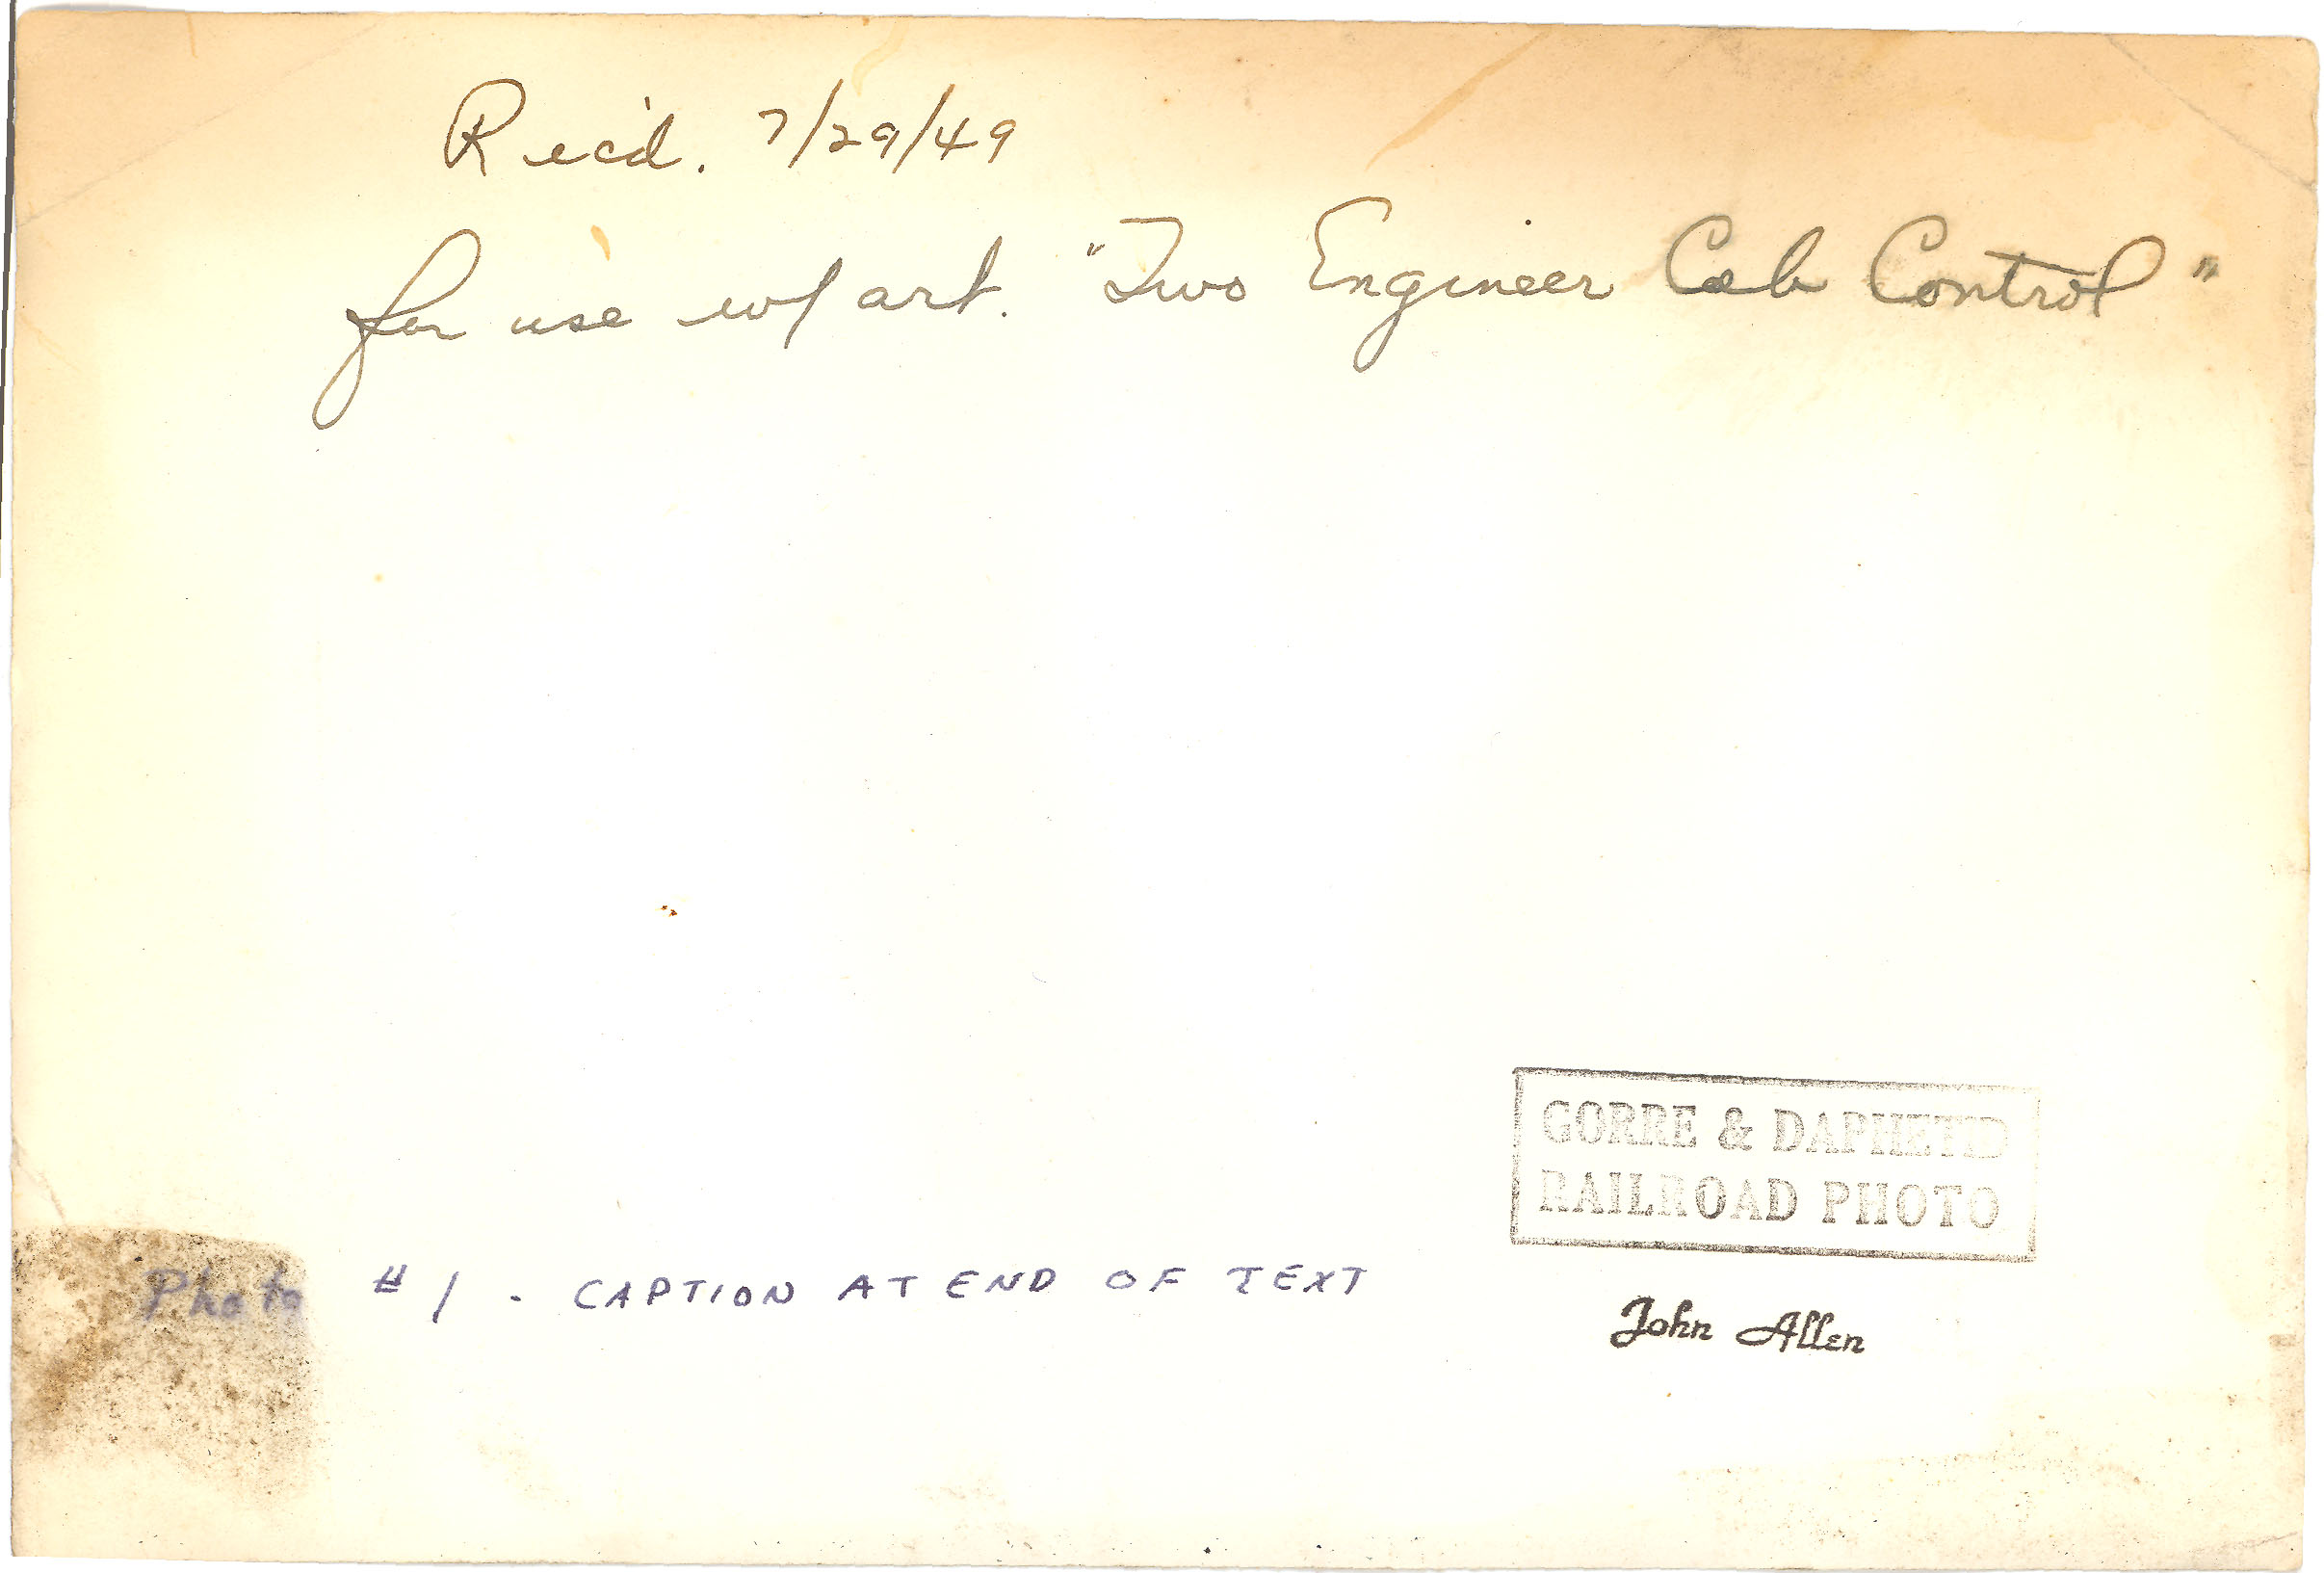 Rec'd. 7/29/49
for use w/ art. "Two Engineer Cab Control"
GORRE & DAPHETID
RAILROAD PHOTO
Photo #1 - CAPTION AT END OF TEXT
John Allen